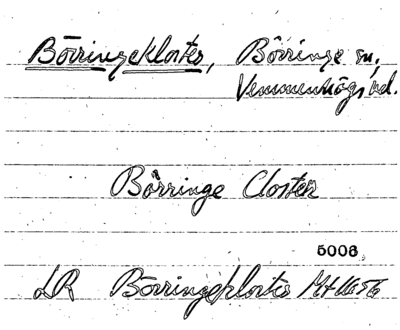 Börringekloster, Börringe sn,
Vemmenhögs hd.
Börringe Closter
5006
LR Börringekloster